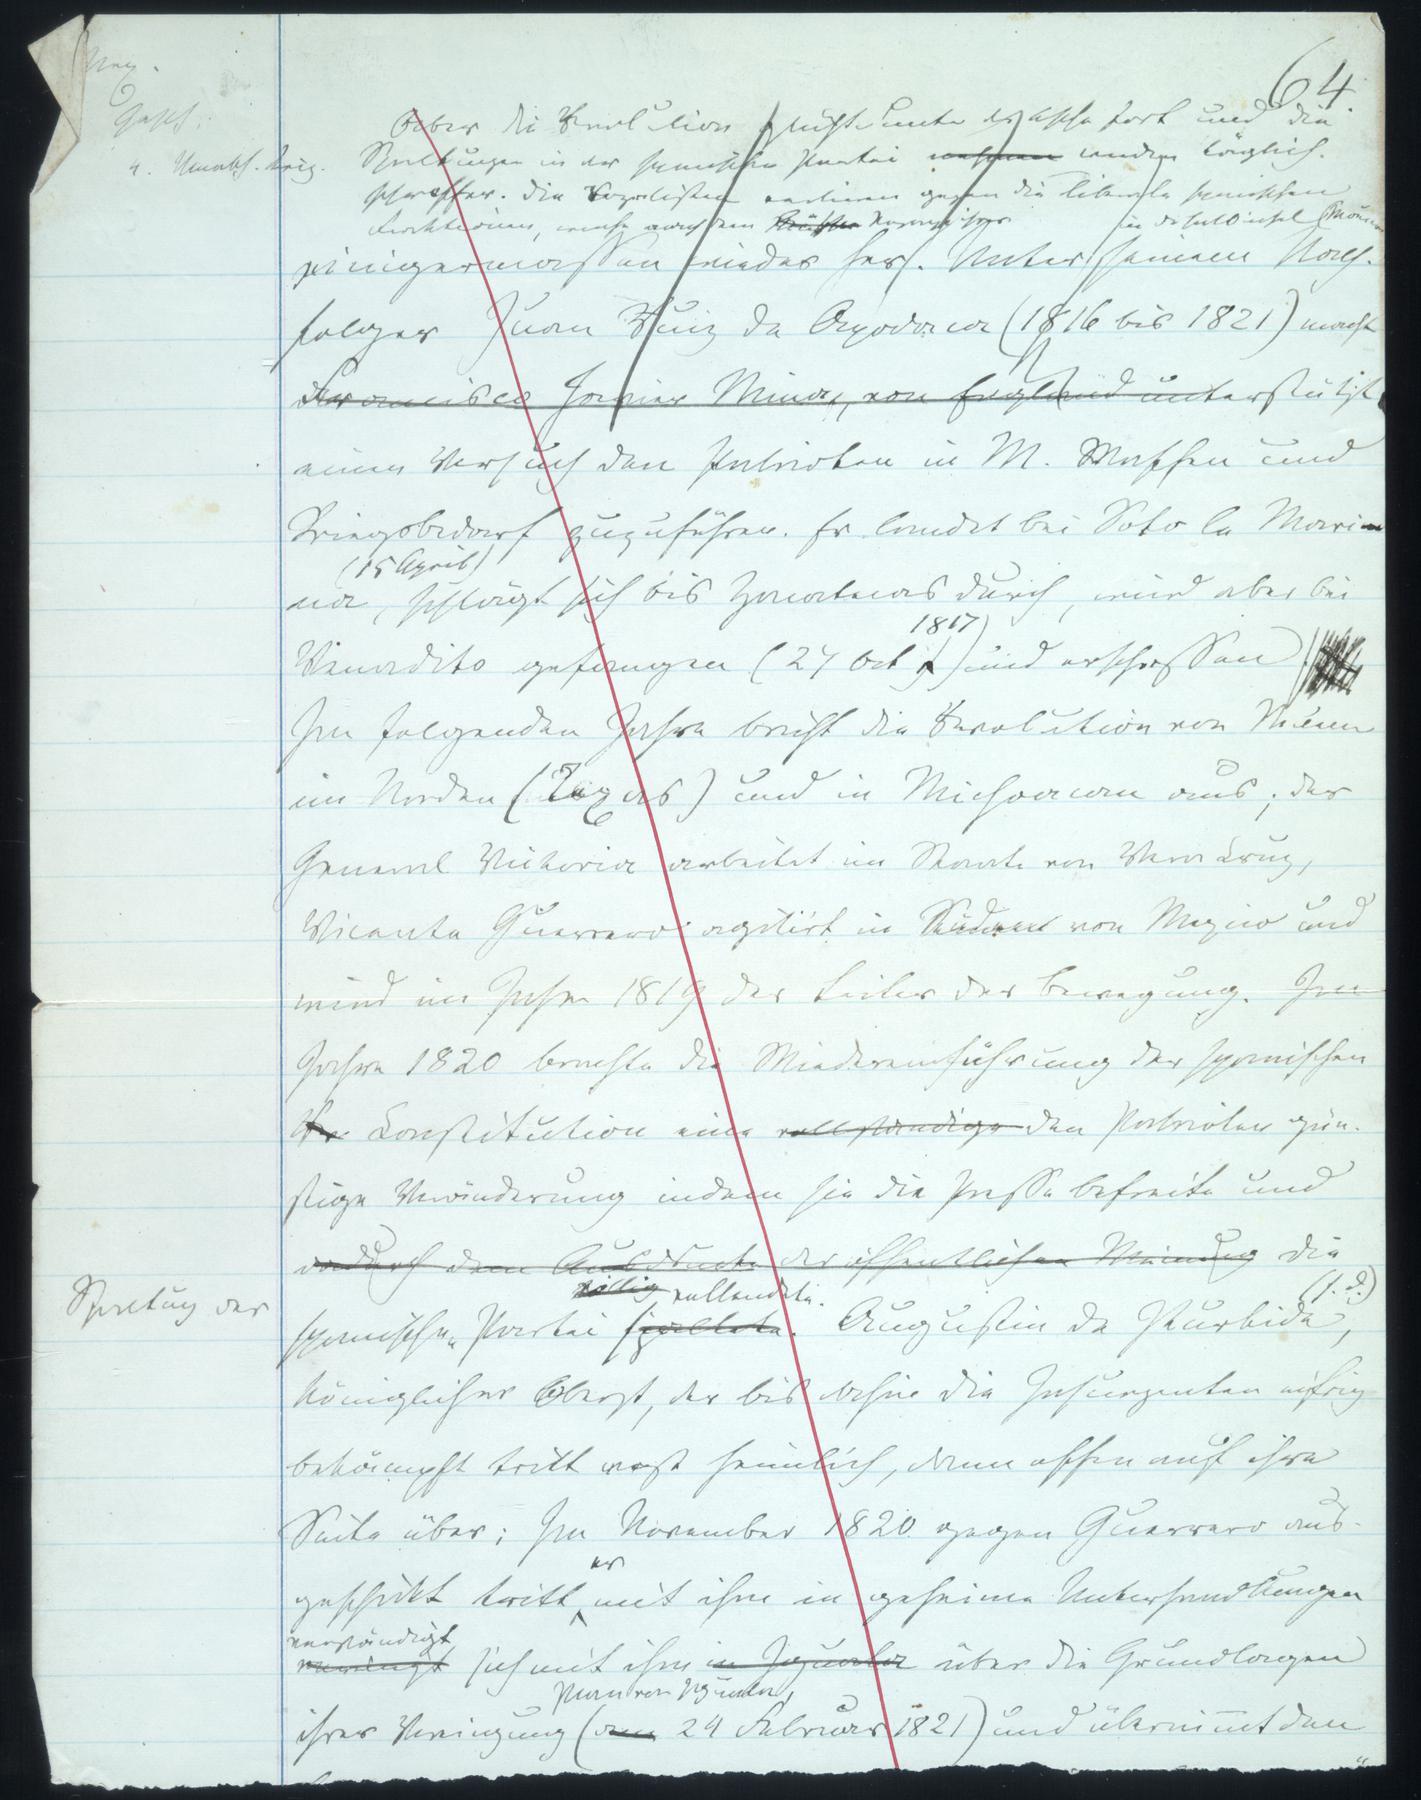 64.
Mex.
Gesch.
4. Unabh. krieg.
Aber die Revolution glühte unter der Asche fort und die
Spaltungen in der spanischen Partei nahmen wurden täglich
schroffer. Die Royalisten verloren gegen die liberale spanischen
einigermassen wieder her. Unter seinem Nach-
folger Juan Ruiz de Apodaca (1816 bis 1821) macht
Francisco Javier Mina, von England unterstützt
einen Versuch den Patrioten in M. Waffen und
Kriegsbedarf zuzuführen. Er landet bei Soto la Mari-
(15 April)
na, schlägt sich bis Zacatecas durch, wird aber bei
1817
Venadito gefangen (27 Oct.) und erschossen
Im folgenden Jahre bricht die Revolution von Neuem
im Norden (Texas) und in Michoacan aus; der
General Victoria arbeitet im Staate von Vera Cruz,
Vicente Guerrero agitirt im Süden von Mexico und
wird im Jahre 1819 der Leiter der Bewegung. Im
Jahre 1820 brachte die Wiedereinführung der spanischen
Constitution eine vollständige den Patrioten gün-
stige Veränderung indem sie die Presse befreite und
dadurch dem Ausdrucke der öffentlichen Meinung die
völlig vollendete.
Spaltung der
(s. d.)
spanischen Partei spaltete. Augustin de Iturbide,
königlicher Oberst, der bis dahin die Insurgenten eifrig
bekämpft tritt erst heimlich, dann offen auf ihre
Seite über; Im November 1820 gegen Guerrero aus-
er
geschickt tritt mit ihm in geheime Unterhandlungen
verständigt
vereinigt sich mit ihm in Iguala über die Grundlagen
Plan von Iguala,
ihrer Vereinigung (am 24 Februar 1821) und übernimmt den